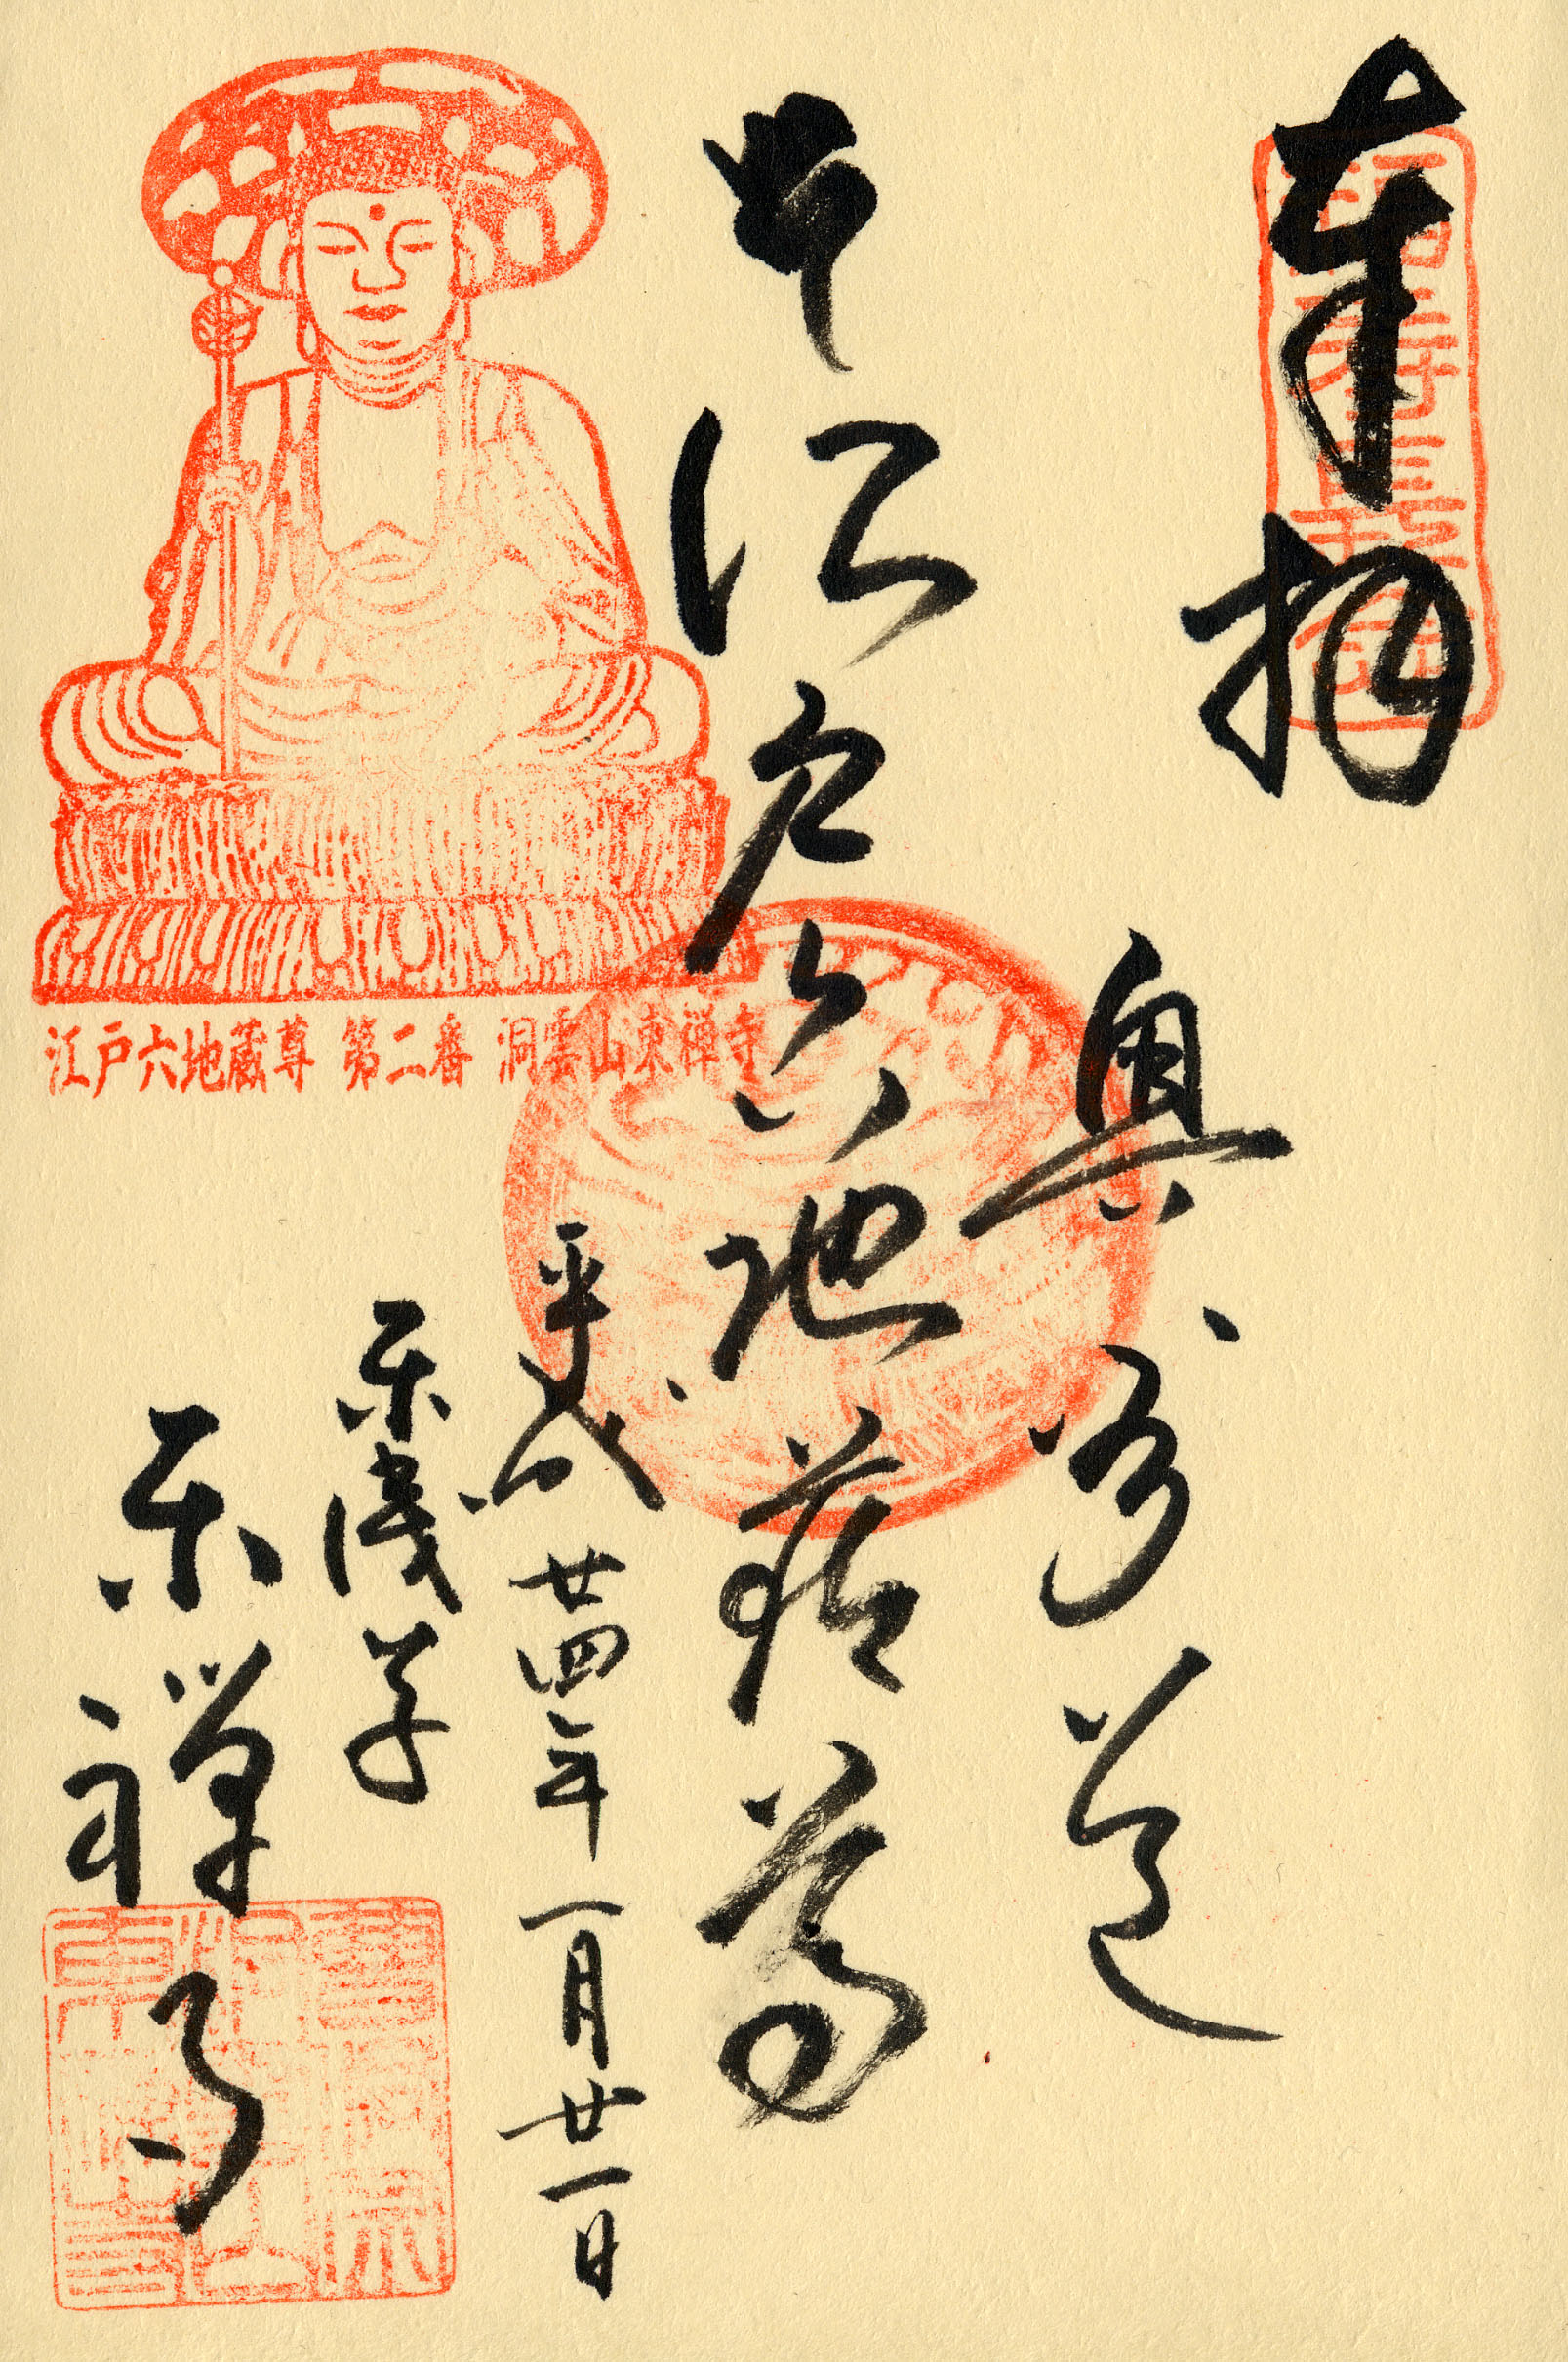 奉拝
奥州道
江戸六地蔵尊
平成廿四年一月廿一日
東浅草
東禅寺
江戸六地蔵尊 第二番 洞雲山東禅寺